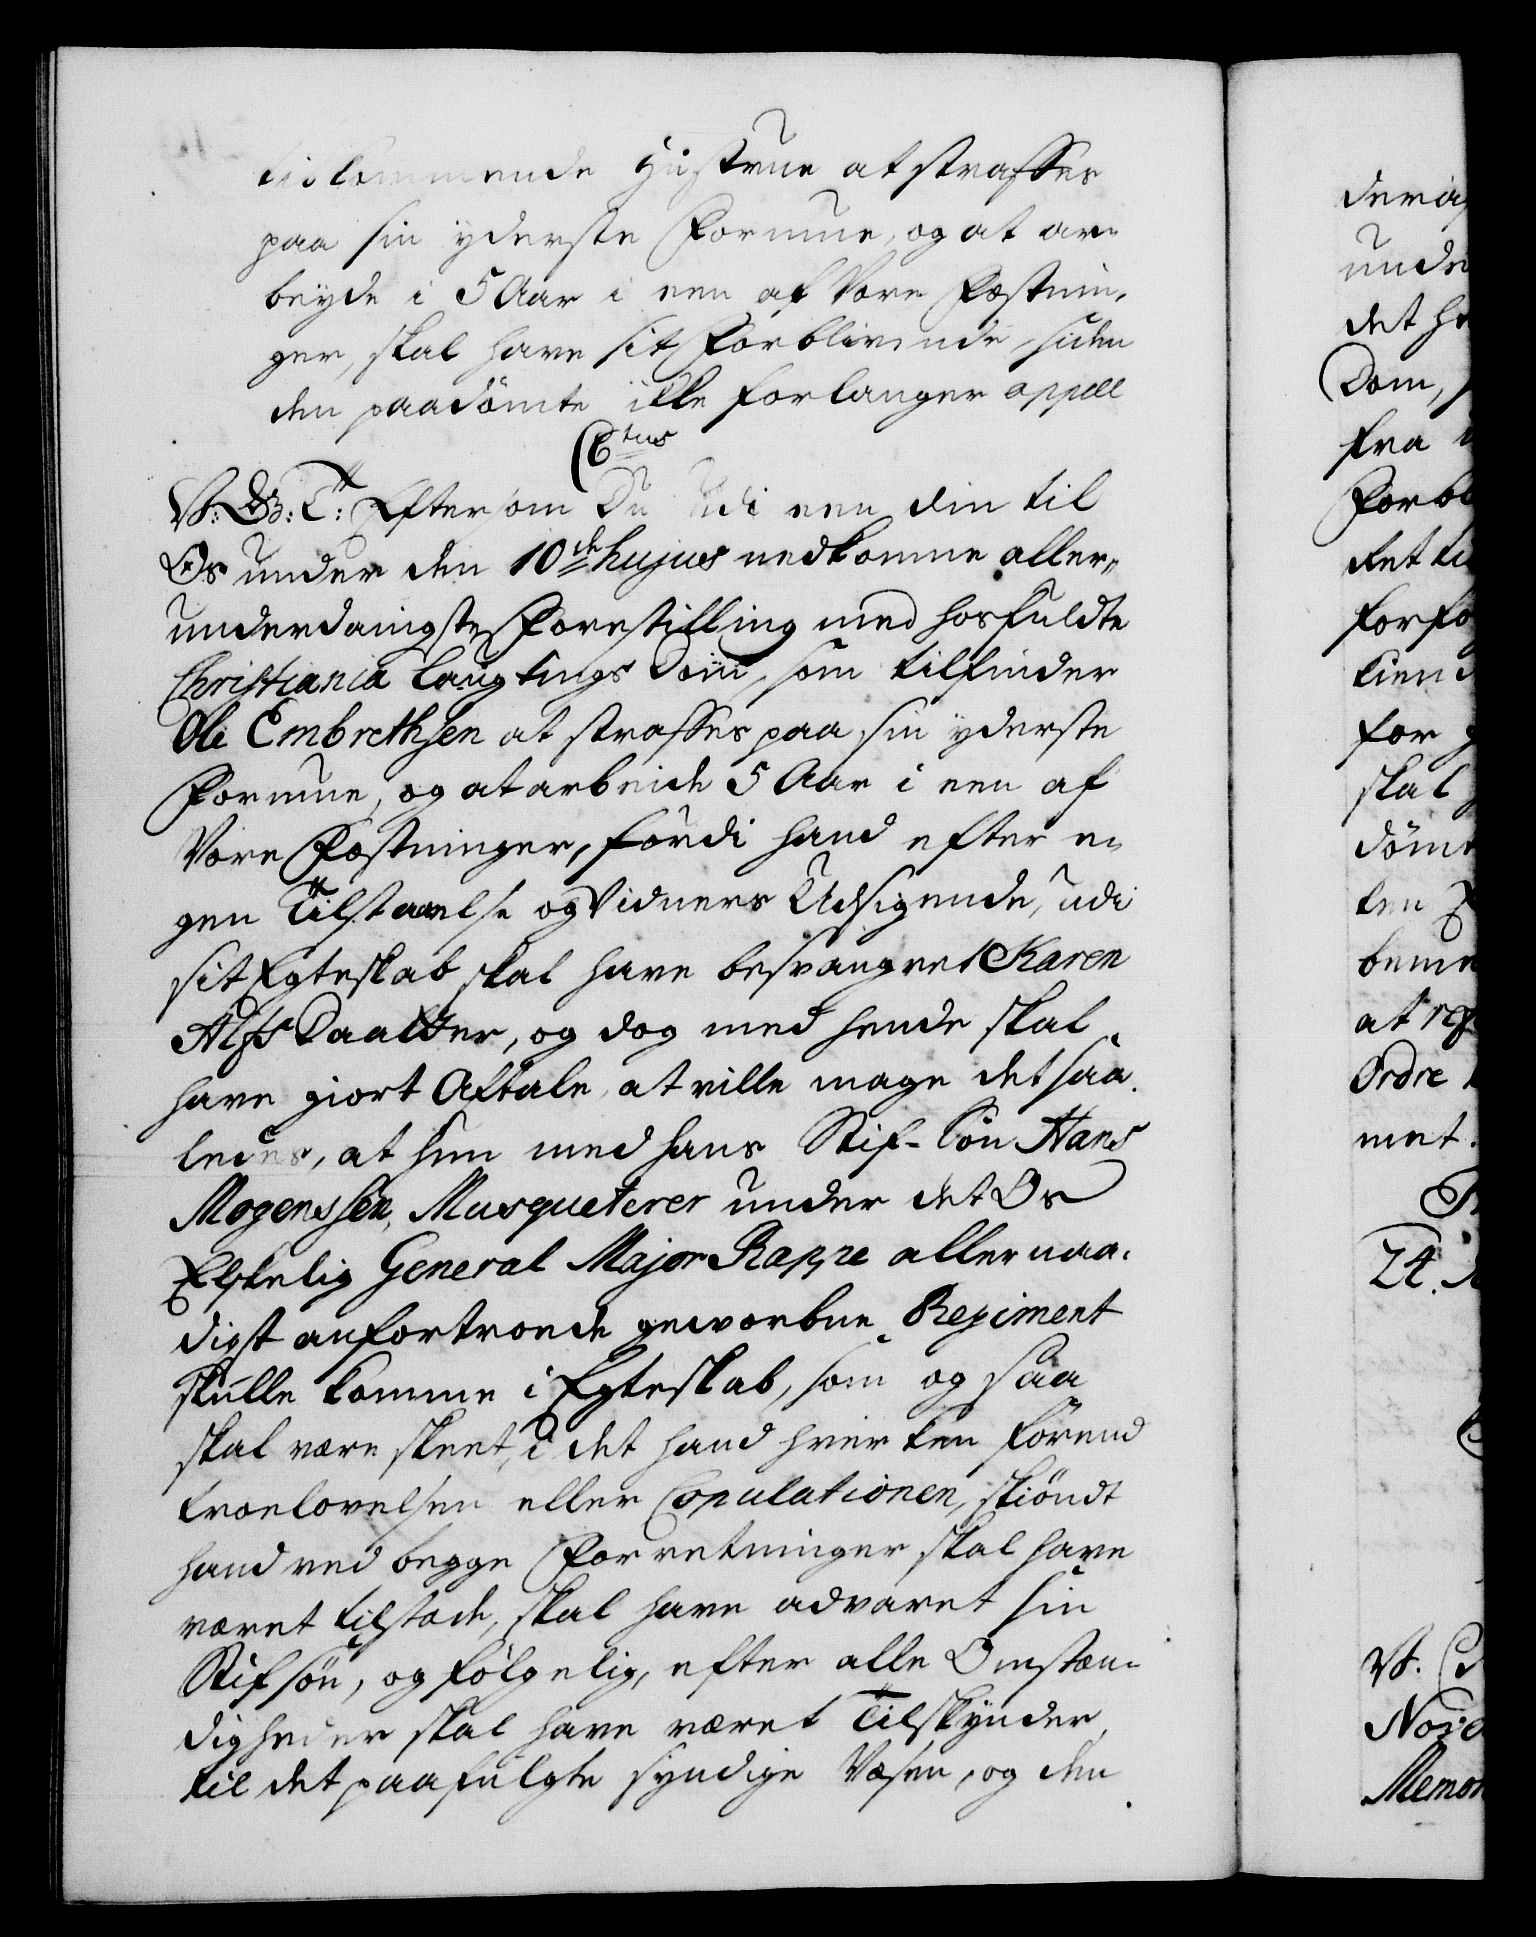 tilkommende Hustrue at straffes
paa sin yderste Formue, og at ar-
beyde i 5 Aar i een af Vore Fæstnin-
ger, skal have sit Forblivende, siden
den paadömte ikke forlanger appell
C6tus
V: G: T: Eftersom Du udi een din til
Os under den 10de hujus nedkomne aller-
underdanigste Forestilling med hosfuldte
Christiania Laugtings Dom, som tilfinder
Ole Embrethsen at straffes paa sin yderste
Formue, og at arbeide 5 Aar i een af
Vore Fæstninger, fordi hand efter e-
gen Tilstaaelse og Vidners Udsigende, udi
sit Egteskab skal have besvangret Karen
Alfs Daatter, og dog med hende skal
have giort Aftale, at ville mage det saa-
ledes, at hun med hans Stif-Sön Hans
Mogenssen, Musqueterer under det Os
Elskelig General Major Rappe allernaa-
digst anfortroede geworbne Regiment
skulle komme i Egteskab, som og saa
skal være skeet, i det hand hverken förend
troelovelsen eller Copulationen, skiöndt
hand ved begge Forretninger skal have
været tilstæde, skal have advaret sin
Stifsön, og fölgelig, efter alle Omstæn-
digheder skal have været Tilskynder,
til det paafulgte syndige Væsen, og den
under
det
Dom,
fra
for
skal
at
Ordre
met.
24.